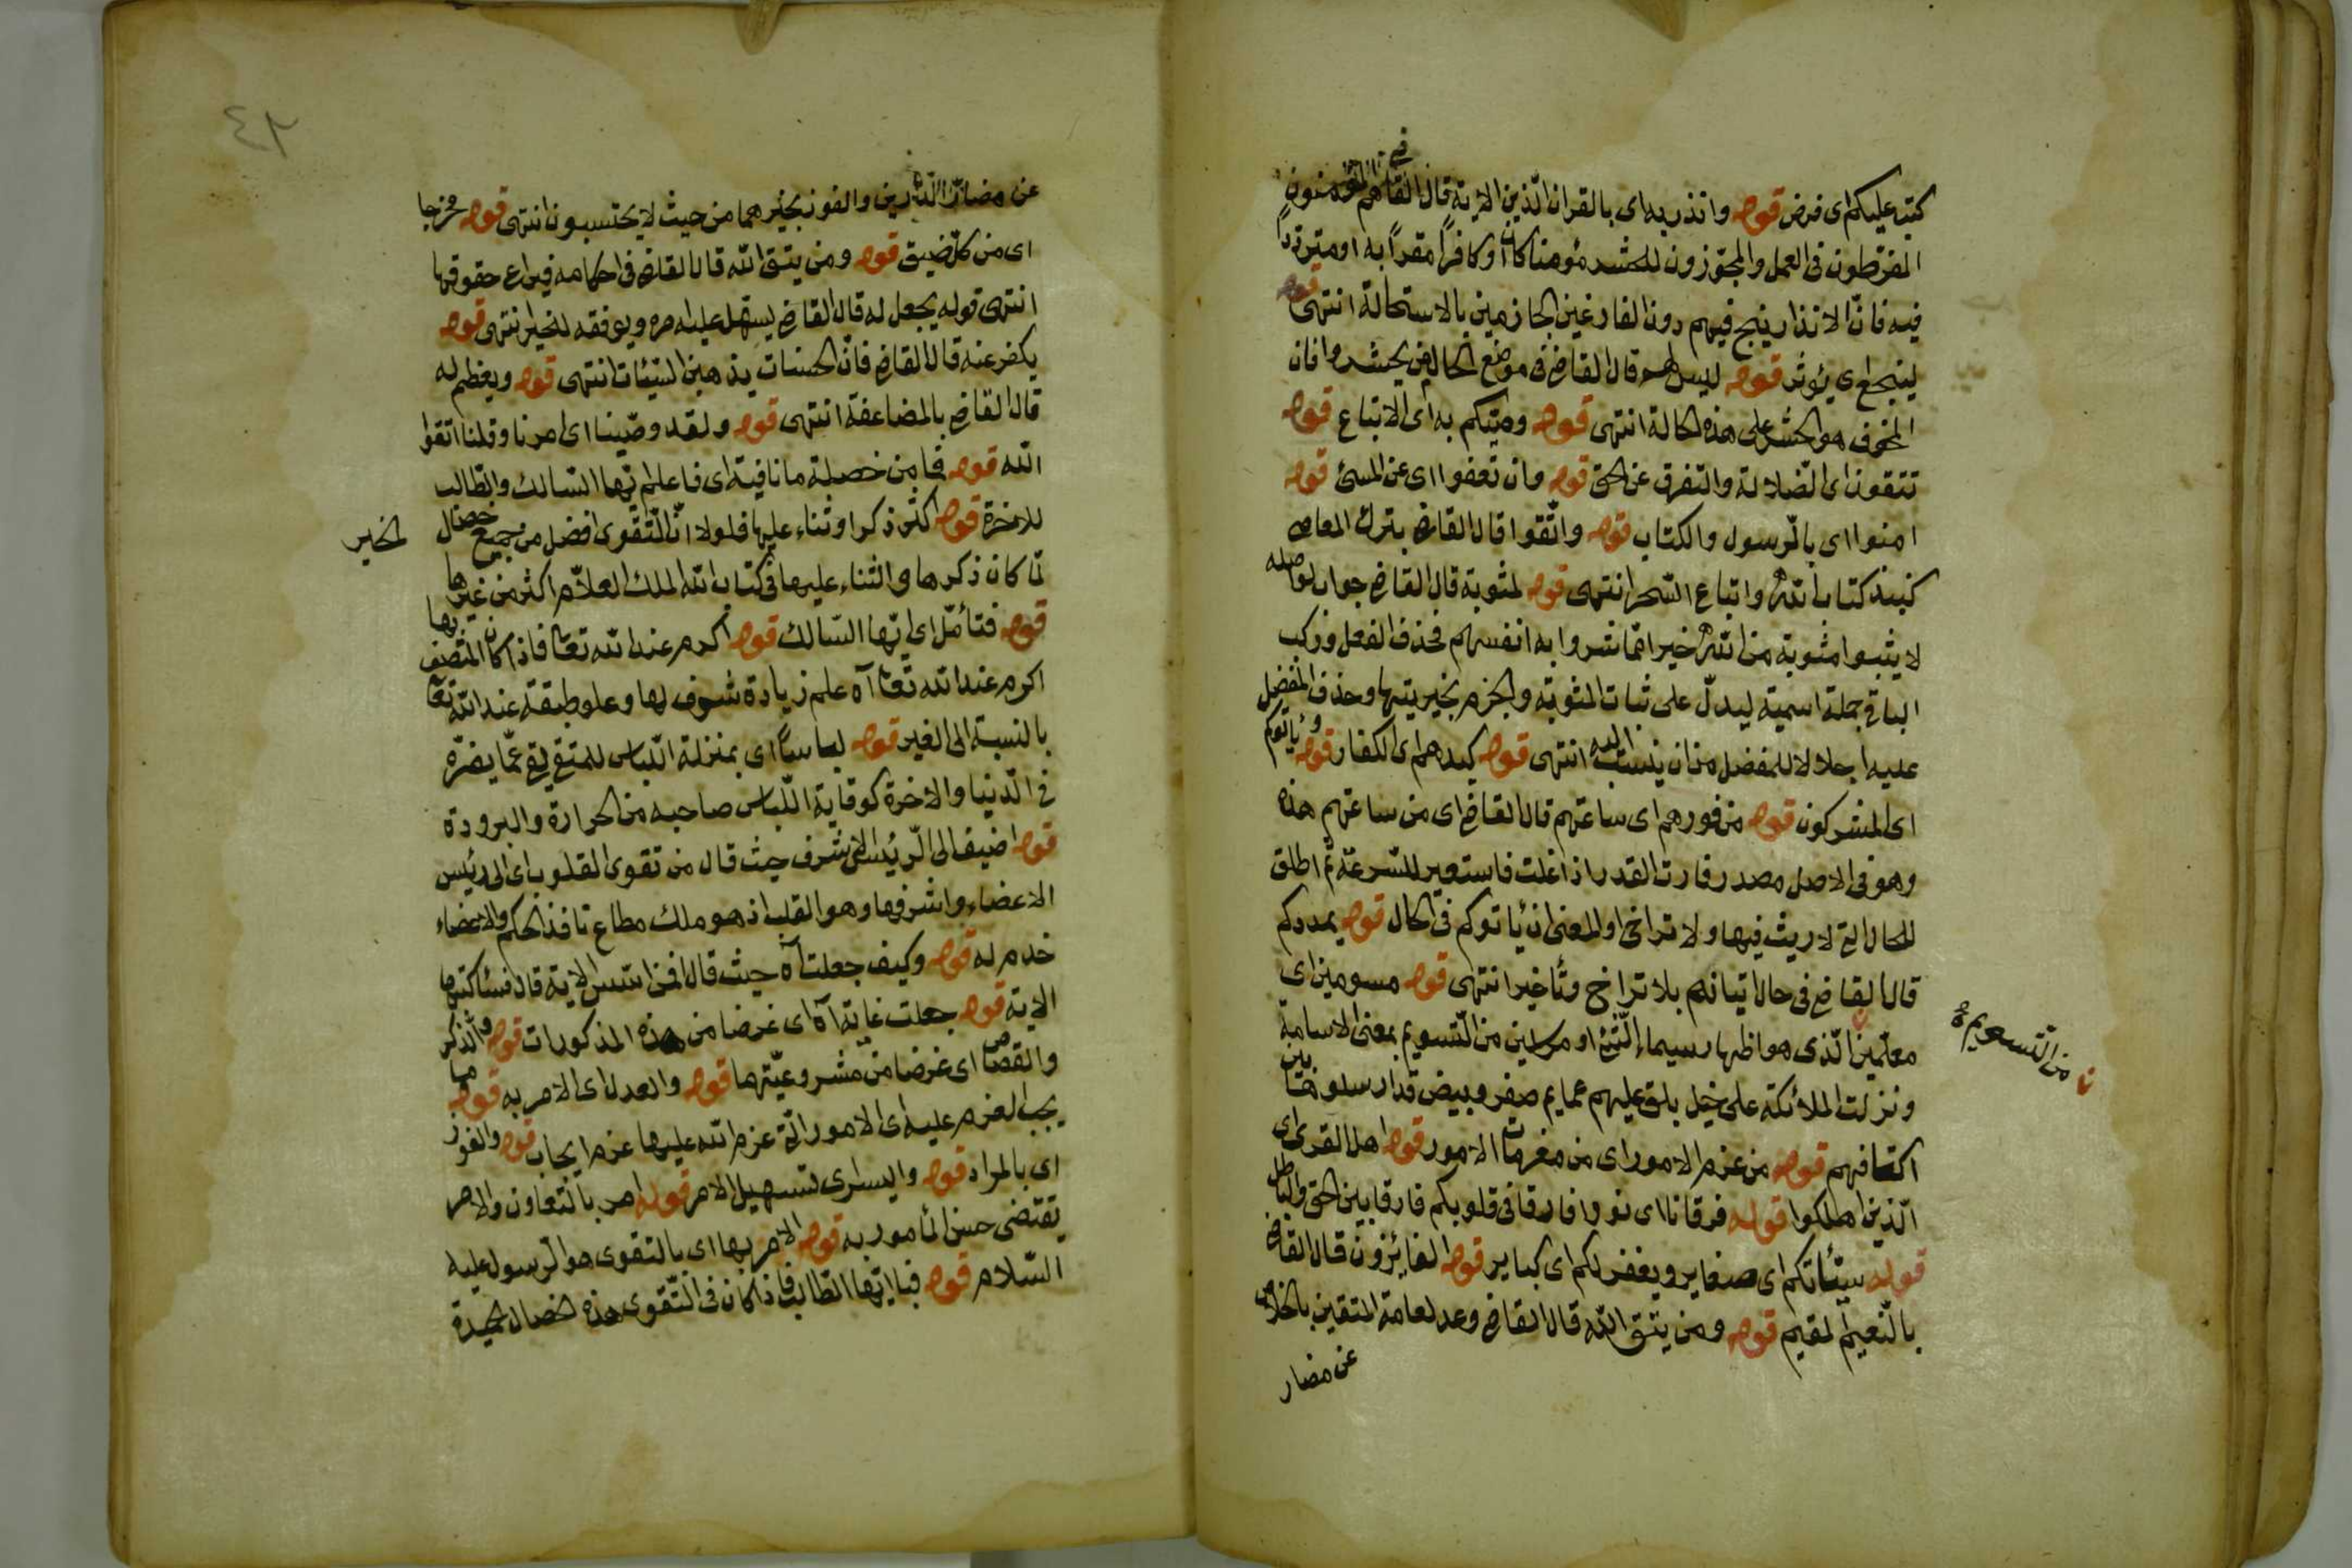 كتب عليكم اى فرض قوله وانذر به اى بالقران الّذين الاية قال القاضى هم المؤمنون
المفرّطون فى العمل والمجوّزون للحشر مؤمنا كان او كافرًا مقرًا به او مترددًا
فيه فانّ الانذار ينجع فيهم دون الفارغين الجازمين بالاستحالة انتهى قوله
لينجع اى يؤثر قوله ليس لهم قال القاضى فى موضع الحال من يحشروا فان
المخوف هو الحشر على هذه الحالة انتهى قوله وصّيكم به اى الاتباع قوله
تتقون اى الضلالة والتفرق عن الحق قوله وان تعفوا اى عن المسئ قوله
امنوا اى بالرّسول والكتاب قوله واتّقوا قال القاضى بترك المعاصى
كنبذ كتاب الله واتباع السّحر انتهى قوله لمثوبة قال القاضى جواب لو اصله
لا يثبوا مثوبة من الله خيرا ممّا شروا به انفسهم فحذف الفعل وركب
الباقى جملة اسمية ليدلّ على ثبات المثوبة والجزم بخيريتها وحذف المفضل
عليه اجلالا للمفضل من ان ينسب اليه انتهى قوله كيدهم اى الكفار قوله ويأتوكم
اى المشركون قوله من فورهم اى ساعتهم قال القاضى اى من ساعتهم هذه
وهو فى الاصل مصدر فارت القدر اذا غلت فاستعير للسّرعة ثم اطلق
للحال التى لا ريث فيها ولا تراخى والمعنى ان يأتوكم فى الحال قوله يمددكم
قال القاضى فى حال اتيانهم بلا تراخ وتأخير انتهى قوله مسومين اى
معلمين الّذى هو اظهار سيماء الشئ او مرسلين من التّسويم بمعنى الاسامة
من التّسويم
ونزلت الملائكة على خيل بلق عليهم عمايم صفر وبيض قد ارسلوها بين
اكتافهم قوله من عزم الامور اى من مغرمات الامور قوله اهل القرى اى
الّذين اهلكوا قوله فرقانا اى نورا فارقا فى قلوبكم فارقا بين الحق والباطل
قوله سيّئاتكم اى صغاير ويغفر لكم اى كباير قوله الفائزون قال القاضى
بالنّعيم المقيم قوله ومن يتق الله قال القاضى وعد لعامة المتقين بالخلاص
عن مضار
٤٢
عن مضارّ الدّارين والفوز بخيرهما من حيث لا يحتسبون انتهى قوله مخرجا
اى من كلّ ضيق قوله ومن يتق الله قال القاضى فى احكامه فيراع حقوقها
انتهى قوله يجعل له قال القاضى يسهل عليه امره ويوفقه للخير انتهى قوله
يكفر عنه قال القاضى فانّ الحسنات يذهبن السّيئات انتهى قوله ويعظم له
قال القاضى بالمضاعفة انتهى قوله ولقد وصّينا اى امرنا وقلنا اتقوا
الله قوله فما من خصلة ما نافية اى فاعلم ايّها السّالك والطّالب
للاخرة قوله اكثر ذكرا وثناء عليها فلولا انّ التّقوى افضل من جميع خصال الخير
لما كان ذكرها والثناء عليها فى كتاب الله الملك العلّام اكثر من غيرها
قوله فتأمّل اى ايّها السّالك قوله اكرم عند الله تعالى فاذا كان المتصف بها
اكرم عند الله تعالى آه علم زيادة شرف لها وعلو طبقة عند الله تعالى
بالنسبة الى الغير قوله لباسًا اى بمنزلة اللّباس للمتقى يقى عمّا يضرّه
فى الدّنيا والاخرة كوقاية اللّباس صاحبه من الحرارة والبرودة
قوله اضيف الى الرّئيس الاشرف حيث قال من تقوى القلوب اى الى رئيس
الاعضاء واشرفها وهو القلب اذ هو ملك مطاع نافذ الحكم والاعضاء
خدم له قوله وكيف جعلت آه حيث قال افمن اسّس الاية قال فسأكتبها
الاية قوله جعلت غاية آه اى غرضا من هذه المذكورات قوله والذكر
والقصاص اى غرضا من مشروعيّتهما قوله والعدل اى الامر به قوله مما
يجب العزم عليه اى الامور الّتى عزم الله عليها عزم ايجاب قوله والفوز
اى بالمراد قوله واليسرى تسهيل الامر قوله امر بالتعاون والامر
يقتضى حسن المأمور به قوله الامر بها اى بالتقوى هو الرّسول عليه
السّلام قوله فيا ايّها الطّالب فاذا كان فى التّقوى هذه الخصال الحميدة